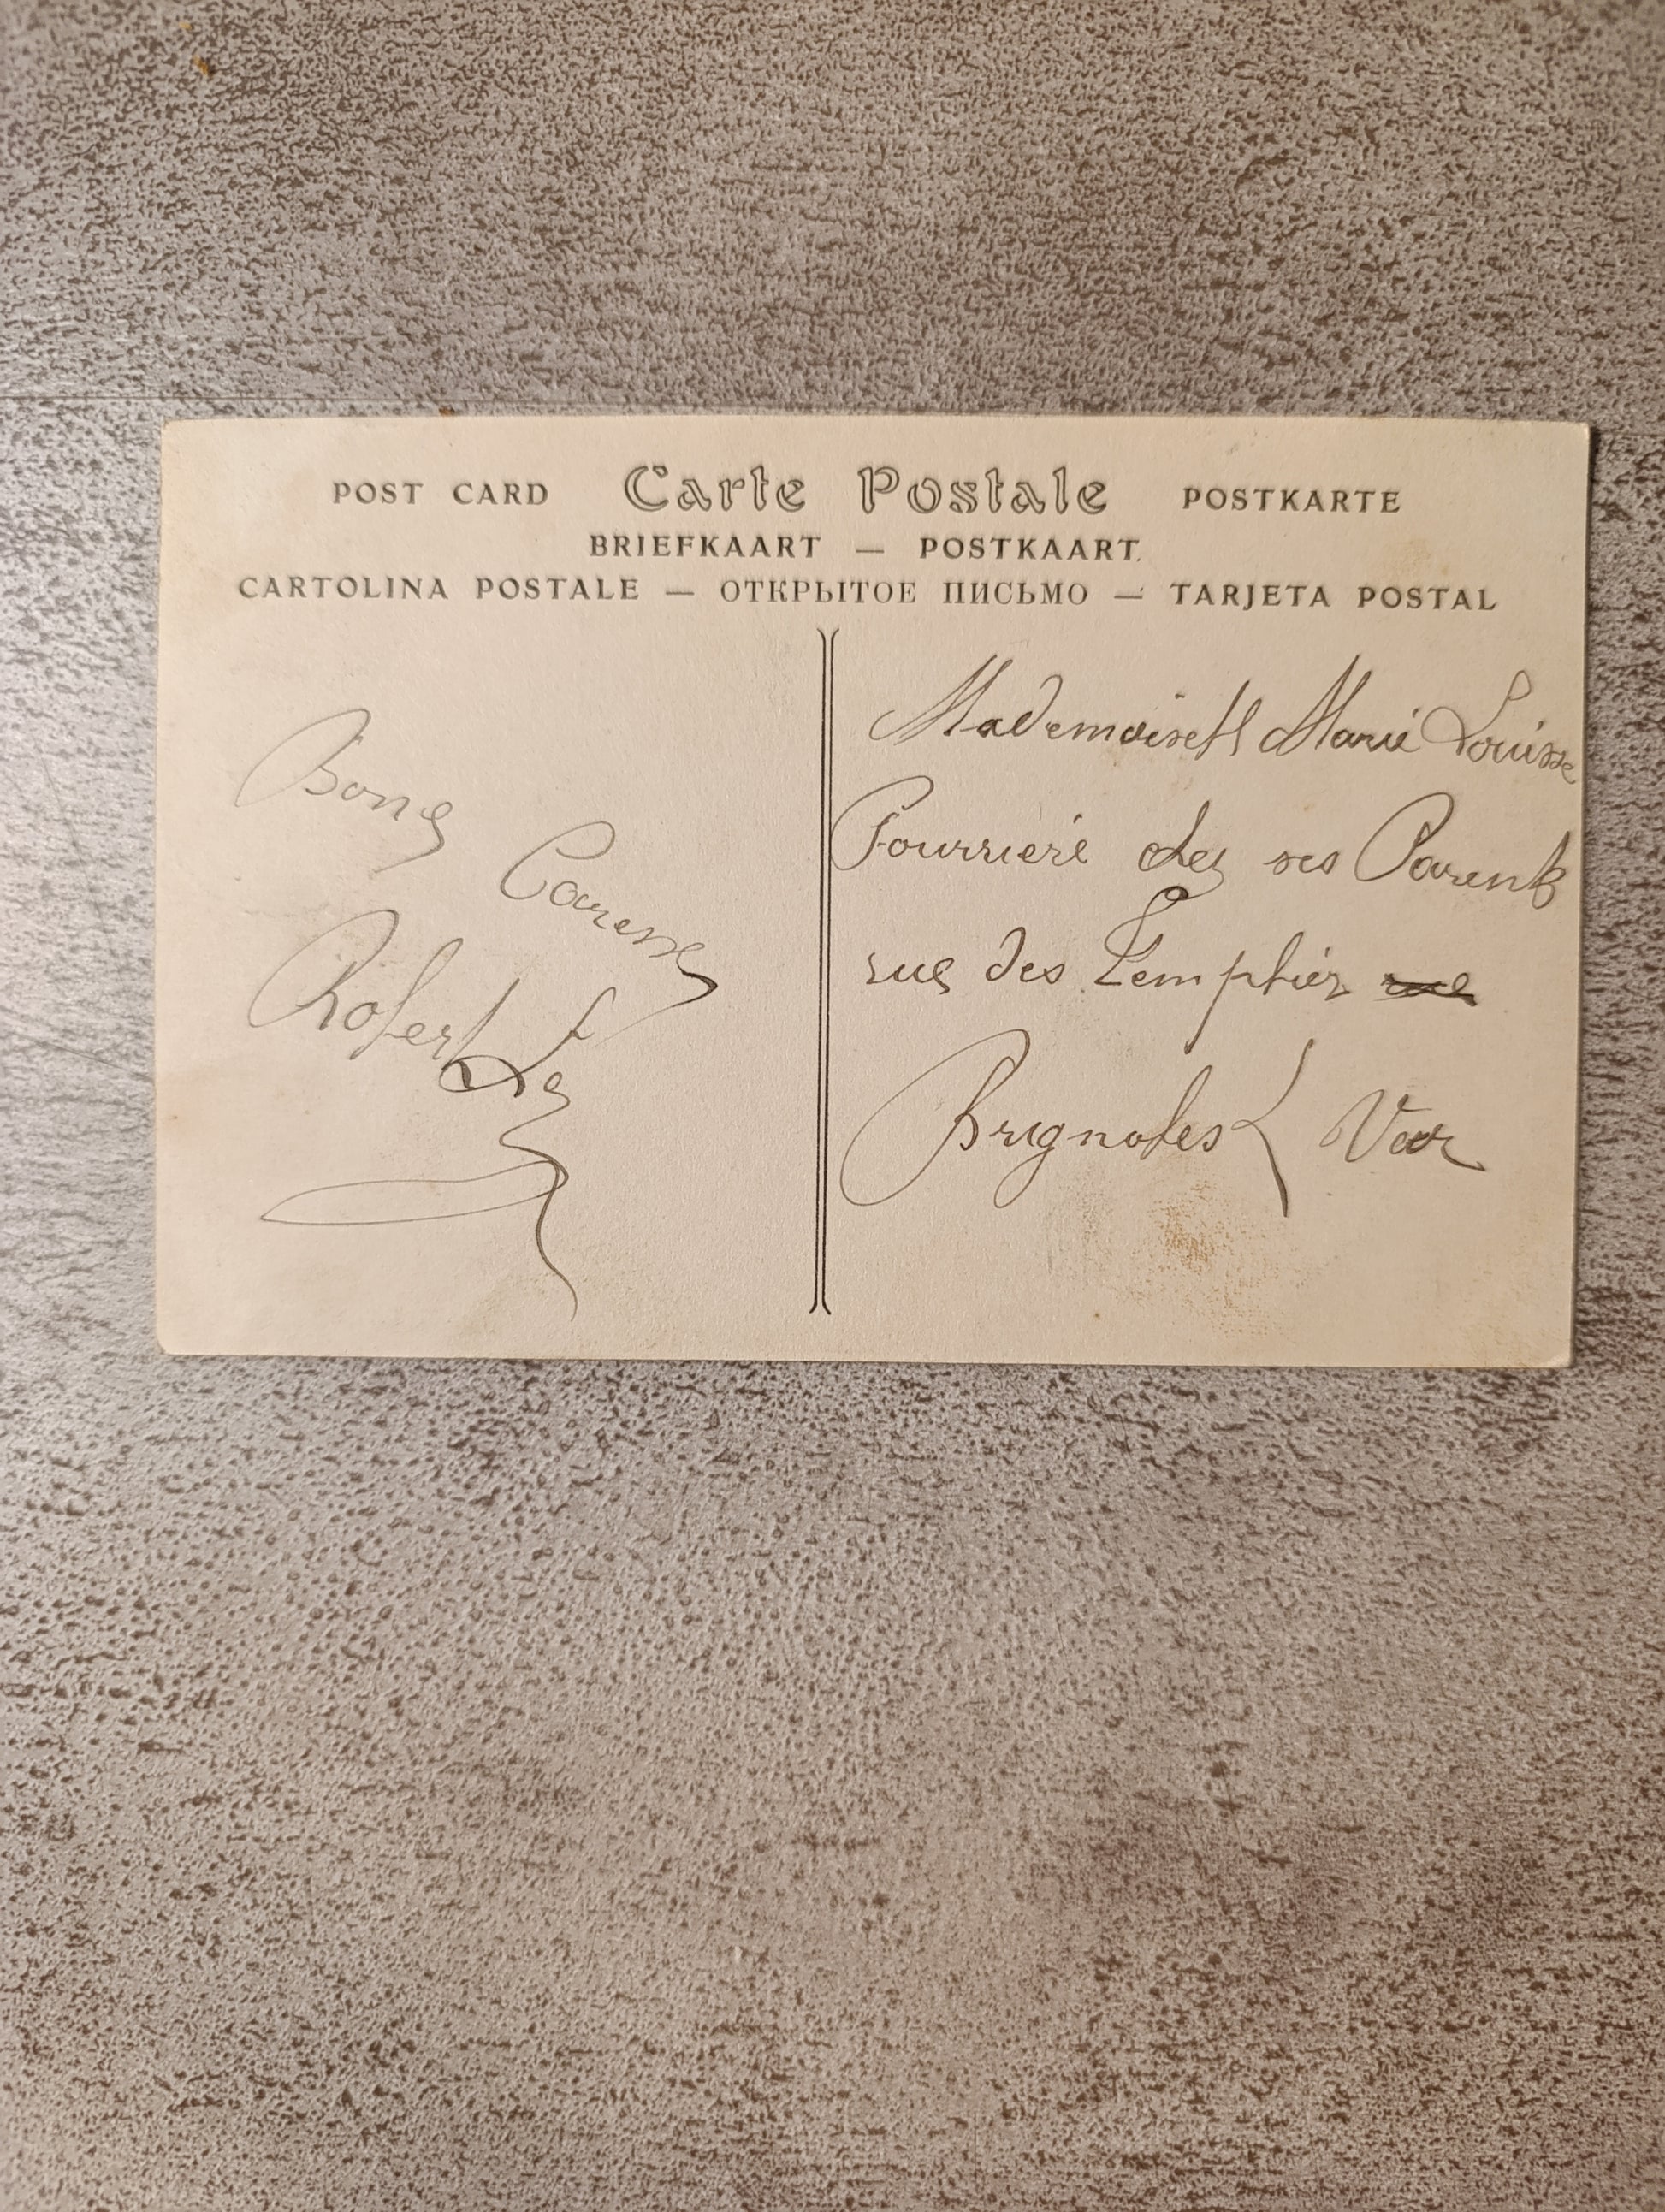 POST CARD Carte Postale POSTKARTE
BRIEFKAART — POSTKAART.
CARTOLINA POSTALE — ОТКРЫТОЕ ПИСЬМО — TARJETA POSTAL
Bons
Caresse
Robert
Mademoisell Marie Louisse
Fourriere chez ses Parents
rue des Templier rue
Brignoles Var